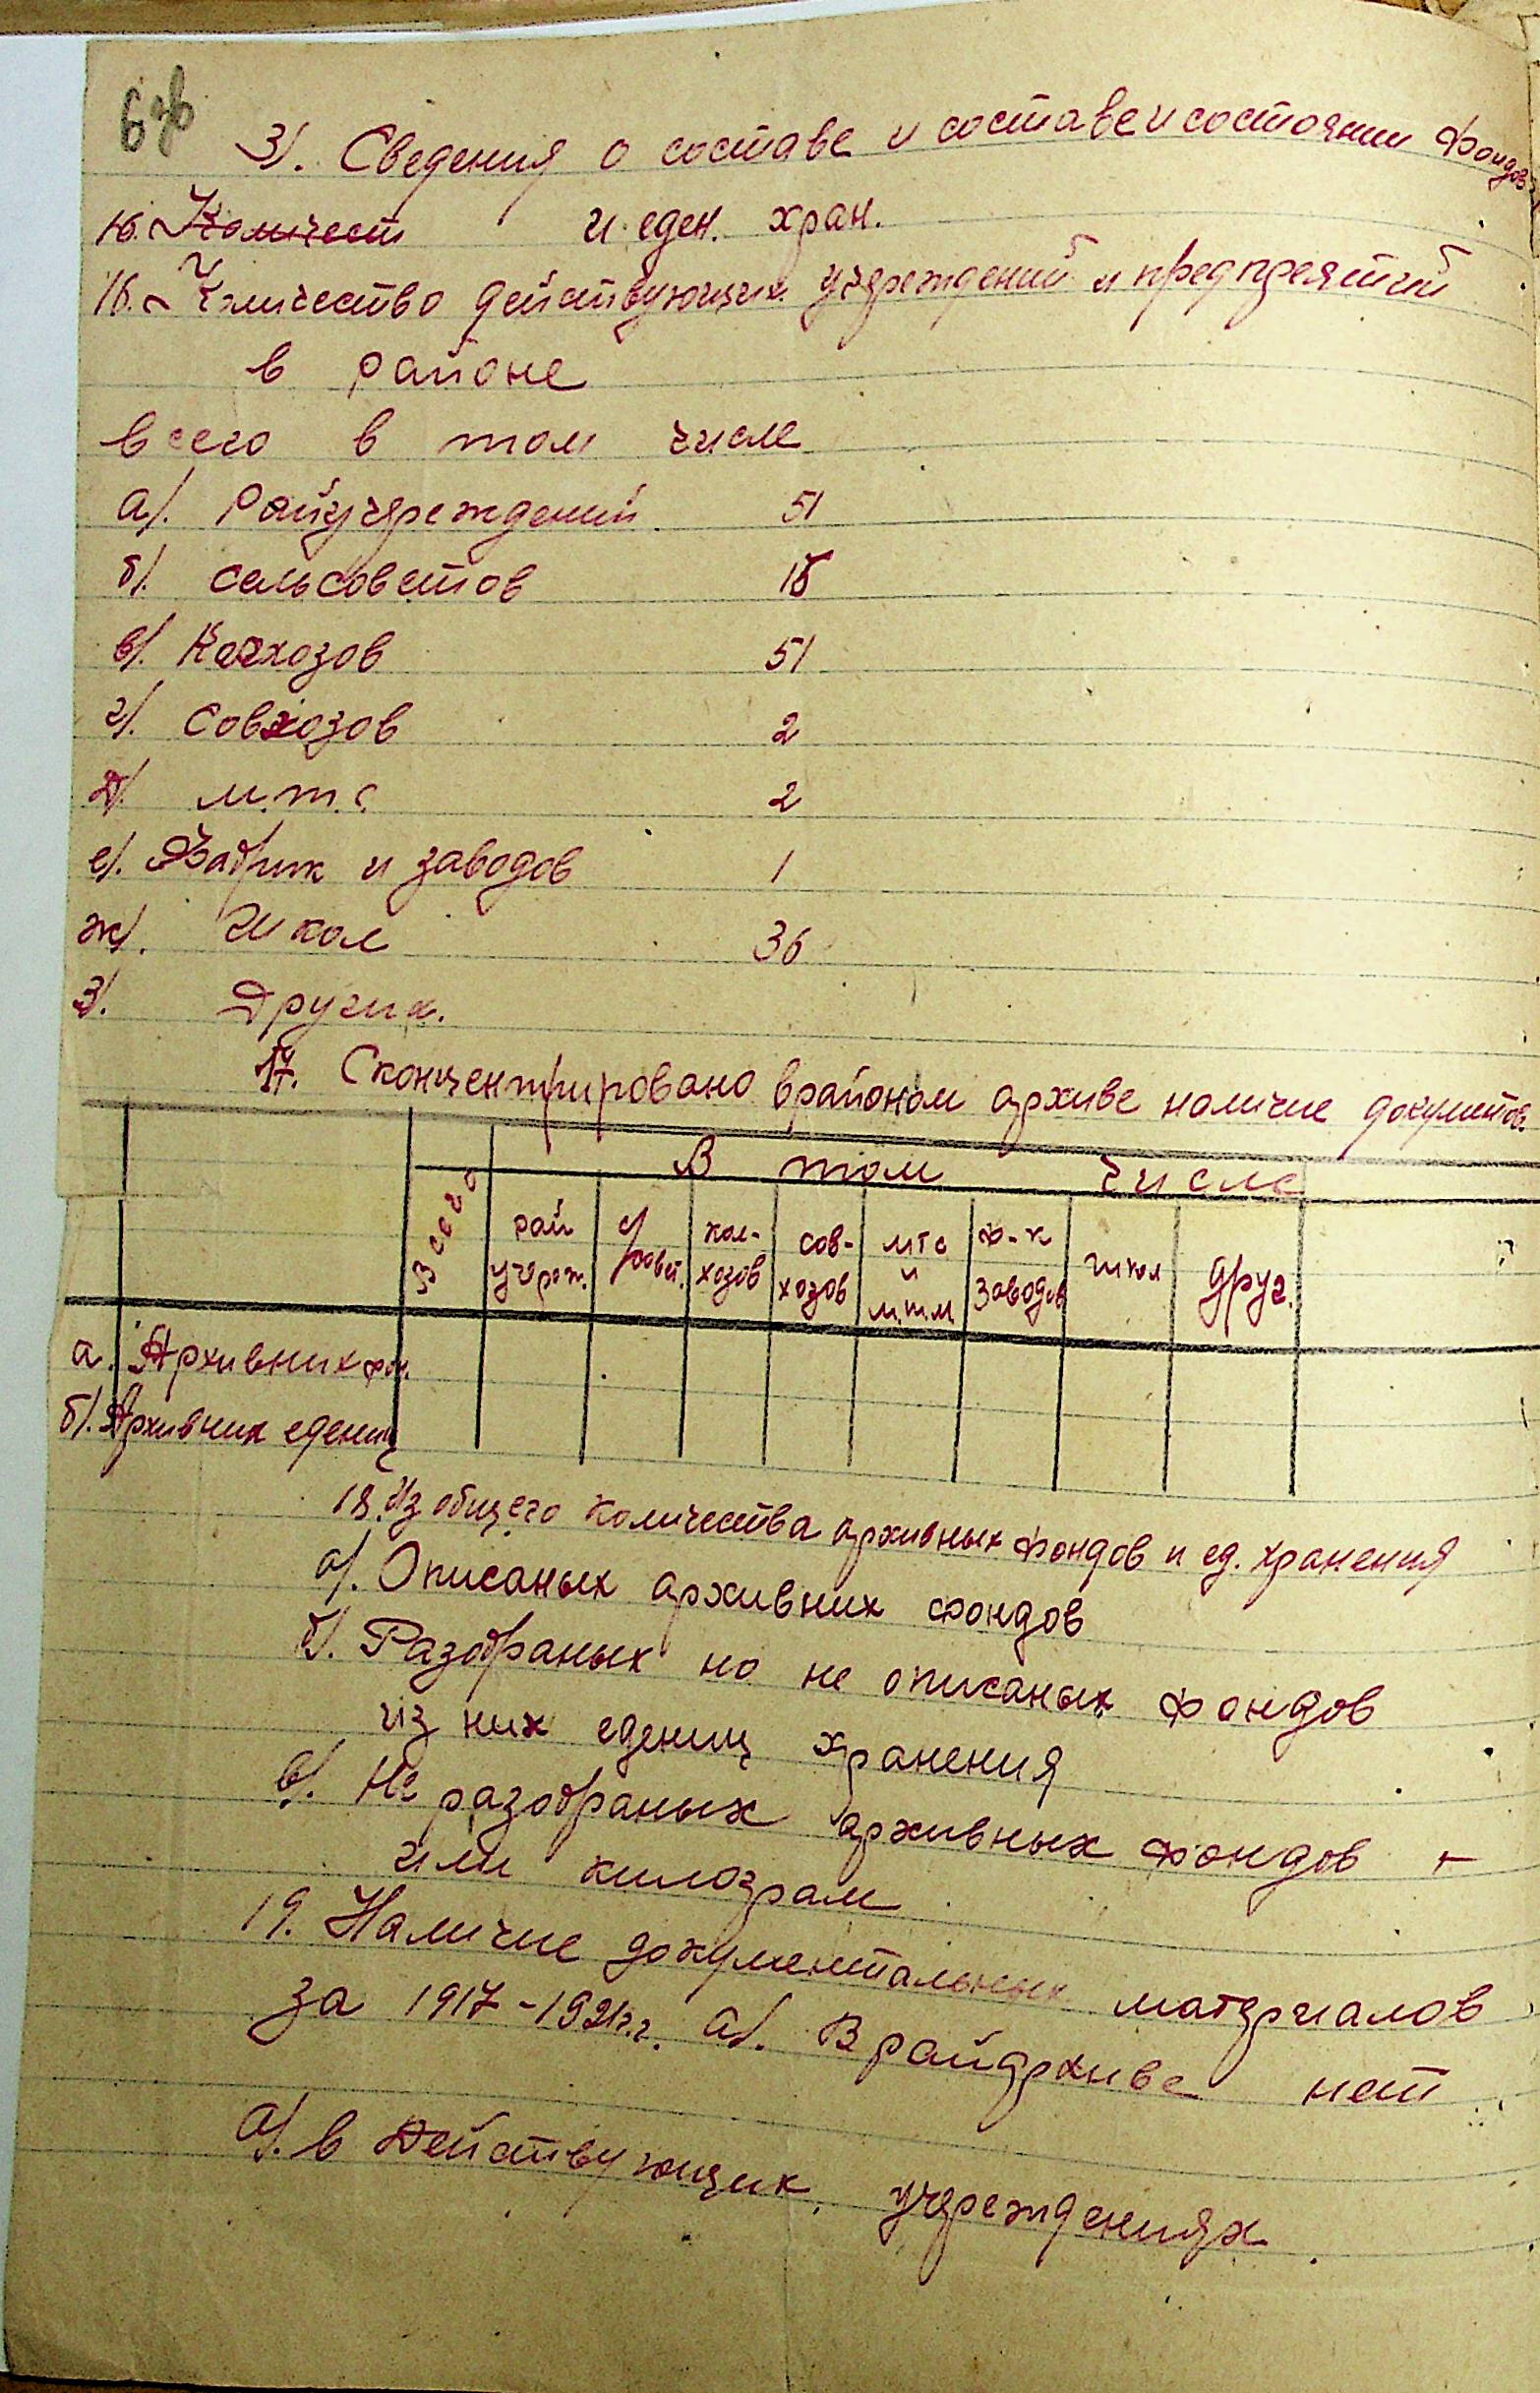 6 зв
3/. Сведения о составе и составе и состоянии фондов
16. Количест и еден. хран.
16. Количество действующих учреждений и предпреятий
в районе
всего в том числе
а/. Райучреждений 51
б/. сельсоветов 18
в/. Колхозов 51
г/. совхозов 2
д/. м.т.с. 2
е/. Фабрик и заводов 1
ж/. Школ 36
з/. Других.
17. Сконцентрировано в районом архиве наличие документов.
В том числе
Всего рай учреж. с/совет. кол-хозов сов-хозов мтс и м.т.м ф-к заводов школ друг.
а. Архивних фон.
б/. Архивних едениц
18. Из общего количества архивных фондов и ед. хранения
а/. Описаных архивних фондов
б/. Разобраных но не описаных фондов
из них едениц хранения
в/. Не разобраных архивных фондов –
или килограм
19. Наличие документальных материалов
за 1917-1921г.г. а/. В райархиве нет
а/. в действующих учреждениях